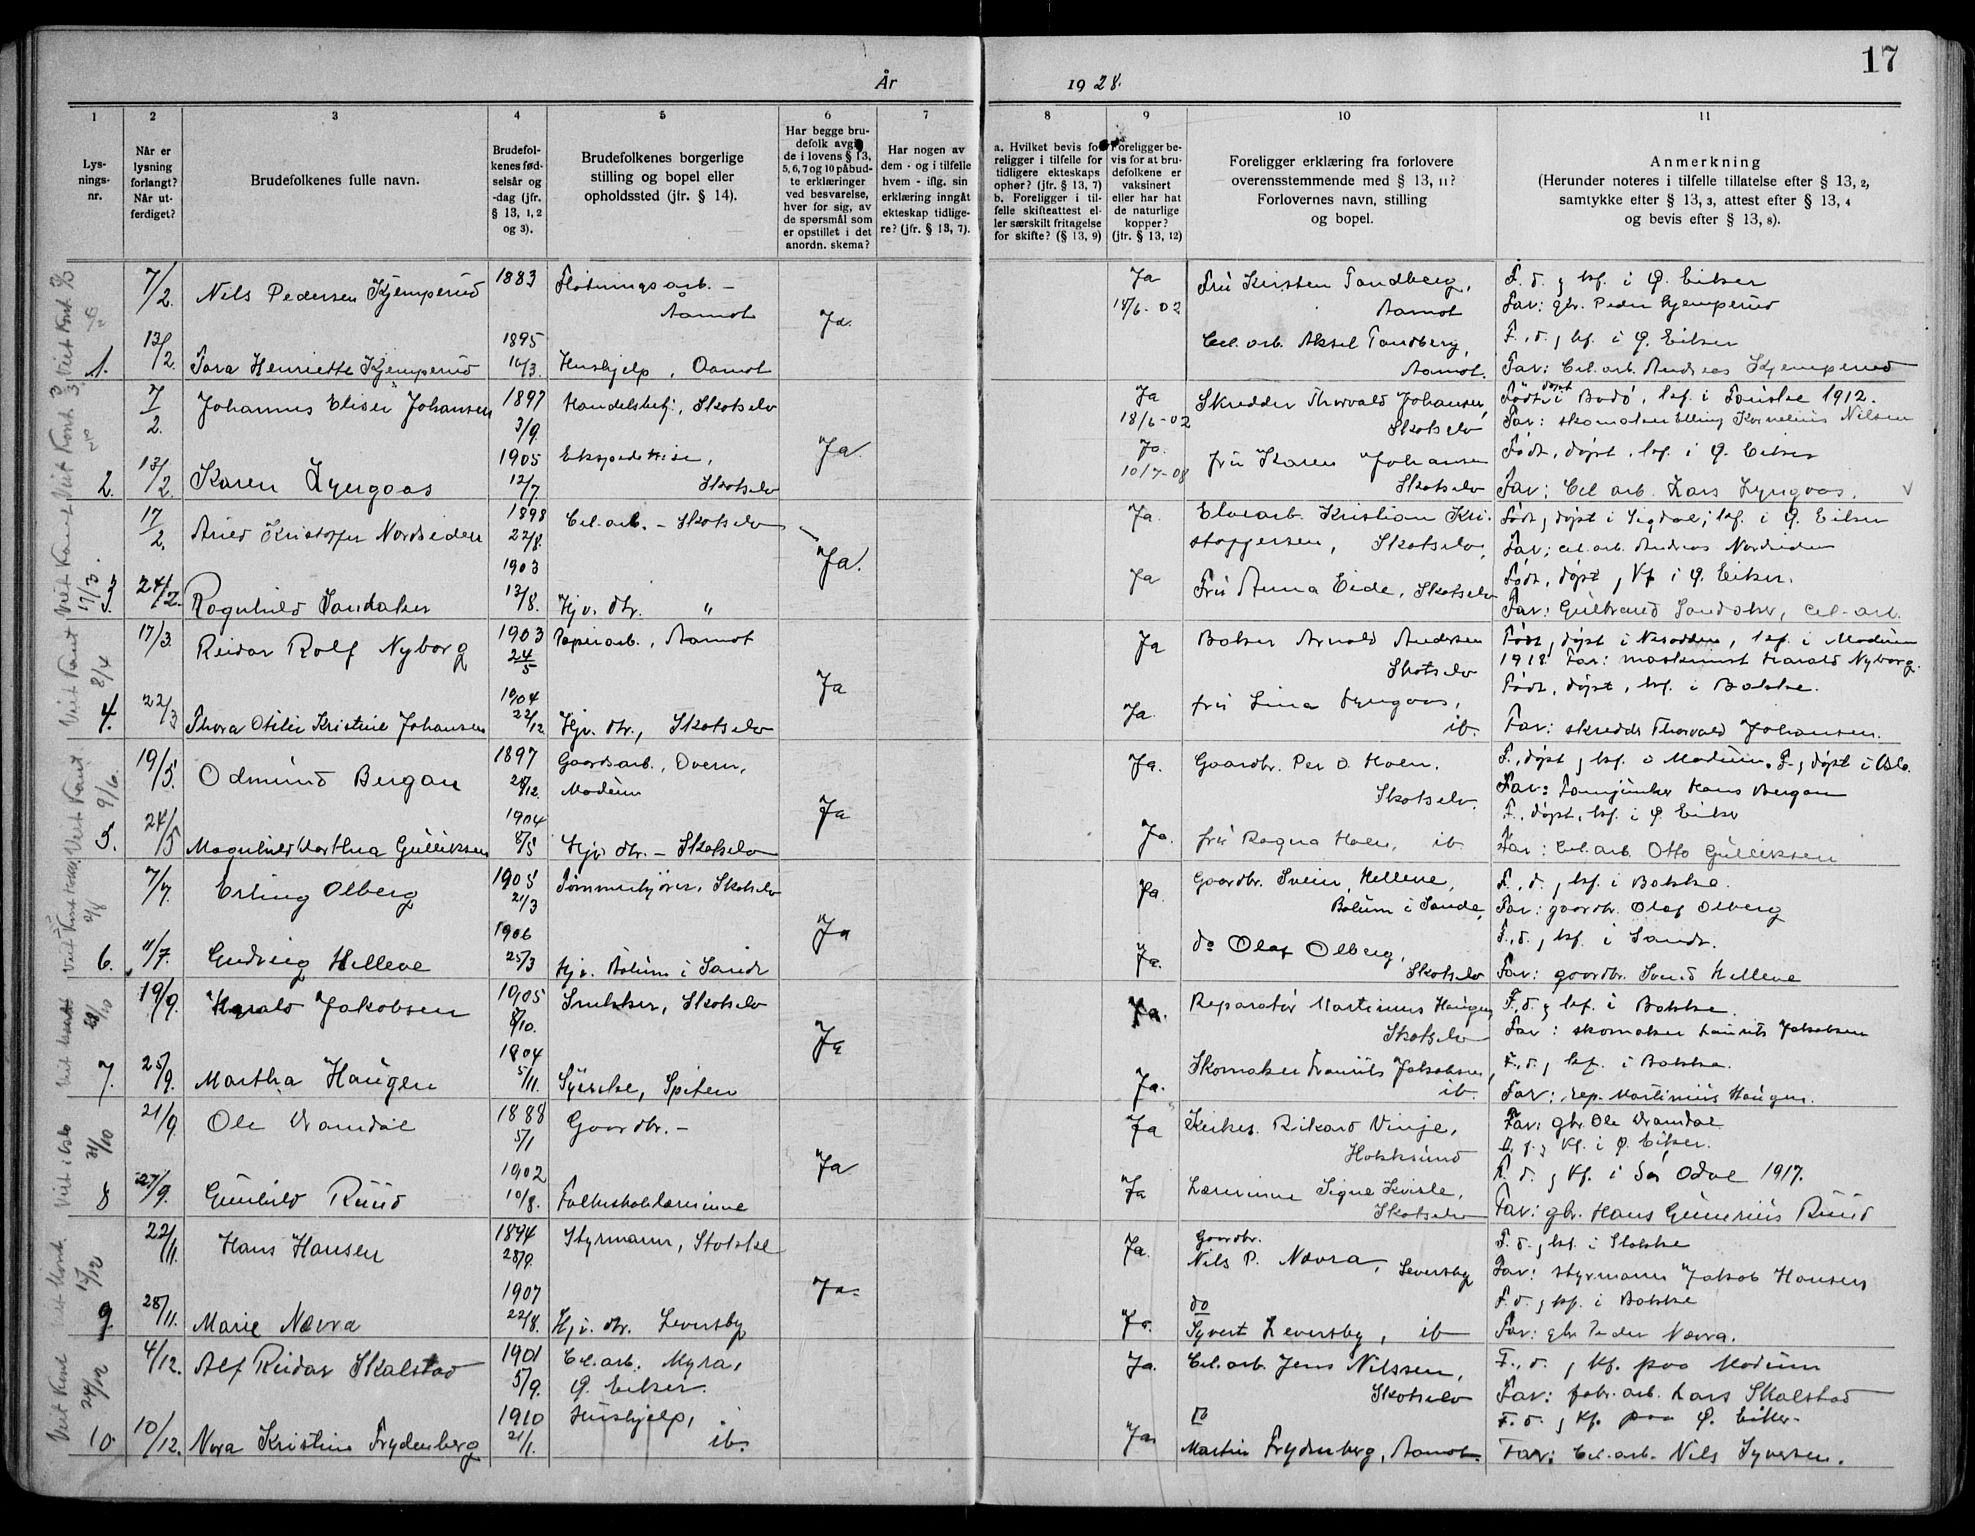 17
År 1928.
1 2 3 4 5 6 7 8 9 10 11
Lysnings-nr.
Når er lysning forlangt? Når utferdiget?
Brudefolkenes fulle navn.
Brudefolkenes fødselsår og -dag (jfr. § 13, 1, 2 og 3).
Brudefolkenes borgerlige stilling og bopel eller opholdssted (jfr. § 14).
Har begge brudefolk avgitt de i lovens § 13, 5, 6, 7 og 10 påbudte erklæringer ved besvarelse, hver for sig, av de spørsmål som er opstillet i det anordn. skema?
Har nogen av dem - og i tilfelle hvem - iflg. sin erklæring inngått ekteskap tidligere? (jfr. § 13, 7).
a. Hvilket bevis foreligger i tilfelle for tidligere ekteskaps ophør? (jfr. § 13, 7) b. Foreligger i tilfelle skifteattest eller særskilt fritagelse for skifte? (§ 13, 9)
Foreligger bevis for at brudefolkene er vaksinert eller har hat de naturlige kopper? (jfr. § 13, 12)
Foreligger erklæring fra forlovere overensstemmende med § 13, 11? Forlovernes navn, stilling og bopel.
Anmerkning (Herunder noteres i tilfelle tillatelse efter § 13, 2, samtykke etter § 13, 3, attest efter § 13, 4 og bevis efter § 13, 8).
7/2. Nils Pedersen Kjemperud 1883 Fløtningsarb. – Aamot Ja. Ja 18/6-02 Fru Kirsten Tandberg, Aamot F. d. & kf. i Ø. Eiker Far: gbr. Peder Kjemperud
1. 13/2. Tora Henriette Kjemperud 1895 16/3. Hushjelp, Aamot Cel. arb. Aksel Tandberg, Aamot. F., d., kf. i Ø. Eiker Far: Cel. arb. Andreas Kjemperud
7/2. Johannes Eliser Johansen 1897 3/9. Handelsbetj., Skotselv Ja Ja 18/6-02 Skredder Thorvald Johansen, Skotselv Født, døpt i Bodø, kf. i Fauske 1912. Far: skomaker Elling Kornelius Nilsen
2. 13/2. Karen Lyngaas 1905 12/7. Ekspeditrise, Skotselv Ja. 10/7-08 fru Karen Johansen Skotselv Født, døpt, kf. i Ø. Eiker Far: Cel. arb. Lars Lyngaas.
17/2. Kristoffer Nordseden 1898 22/8. Cel. arb. – Skotselv Ja. Ja. Elvearb. Kristian Kristoffersen, Skotselv, Født, døpt i Sigdal; kf. i Ø. Eiker Far: cel. arb. Andreas
3. 24/2. Ragnhild Sandaker 1903 13/8. Hjv. dtr. " Ja Fru Anna Eide, Skotselv Født, døpt, kf i Ø. Eiker. Far: Gulbrand Sandaker, cel. arb.
17/3. Reidar Rolf Nyborg 1903 24/5 Papirarb., Aamot Ja Ja Baker Arnold Andersen Skotselv Født, døpt i Nesodden, kf. i Modum 1918 Far: maskinist Harald Nyborg.
4. 22/3 Thora Otilie Kristine Johansen 1904 22/12. Hjv. dtr., Skotselv Ja. fru Lina Lyngaas, ib. Født, døpt, kf. i Bakke. Far: skredder Thorvald Johansen.
19/5. Odmund Bergan 1897 28/12. Gaardsarb., Overn, Modum Ja Ja. Gaardbr. Per O. Hoen, Skotselv. F., døpt, kf. Modum. Far: Hans Bergan
5. 24/5 Magnhild Marthea Gulliksen 1904 8/5 Hjv dtr. – Skotselv Ja. fru Ragna Hoen, ib. F., døpt, kf. i Ø Eiker Far: Cel. arb. Otto Gulliksen
7/7. Erling Olberg 1905 21/3 Tømmerkjører, Skotselv Ja Ja. Gaardbr. Svein Helleve, Bolum i Sande, F., d., kf. i Bakke. Far: gaardbr. Olaf Olberg
6. 11/7. Gudveig Helleve 1906 25/3 Hjv. Bolum i Sande Ja. do Olaf Olberg, Skotselv F., d., kf. i Sande. Far: gaardbr. Svend Helleve
19/9. Harald Jakobsen 1905 8/10. Snekker, Skotselv Ja Ja. Reparatør Martinius Haugen, Skotselv F., d. & kf. i Bakke. Far: skomaker Laurits Jakobsen
7. 25/9. Martha Haugen 1904 5/11. Syerske, Spiten Ja. Skomaker Laurits Jakobsen, ib. F., d., kf. i Bakke. Far: rep. Martinius Haugen.
21/9. Ole Dramdal 1888 5/1 Gaardbr. – Ja Ja Kirkes. Rikard Vinje, Hokksund Far: gbr Ole Dramdal d. & kf. i Ø. Eiker.
8 27/9. Gunhild Ruud 1902 10/8. Folkeskolelærerinne Ja Lærerinne Signe Kvisle, Skotselv F. d. & kf. i Sør Odal 1917. Far: gbr. Hans Gunerius Ruud
22/11. Hans Hansen 1894 28/9. Styrmann, Stokke Ja. Ja. Gaardbr. Nils P. Nævra, Leversby F. d., kf. i Stokke Far: styrmann Jakob Hansen
9 28/11. Marie Nævra 1907 22/8. Hjv. dtr. Leversby Ja. do Syvert Leversby, ib F. d., kf. i Bakke Far: gbr Peder Nævra.
4/12. Alf Reidar Skalstad 1901 5/9. Cel. arb. Myra, Ø. Eiker. Ja. Cel. arb. Jens Nilssen, Skotselv F., d., kf. paa Modum Far: fabr. arb. Lars Skalstad
10. 10/12. Nora Kristine Frydenberg 1910 21/1. Hushjelp, ib. Ja. Do Martin Frydenberg, Aamot. F. d., kf. paa Ø. Eiker. Far: Cel. arb. Nils Syversen.